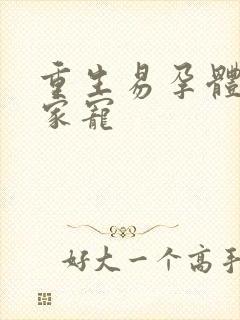 重生易孕體
家寵
好大一个高手